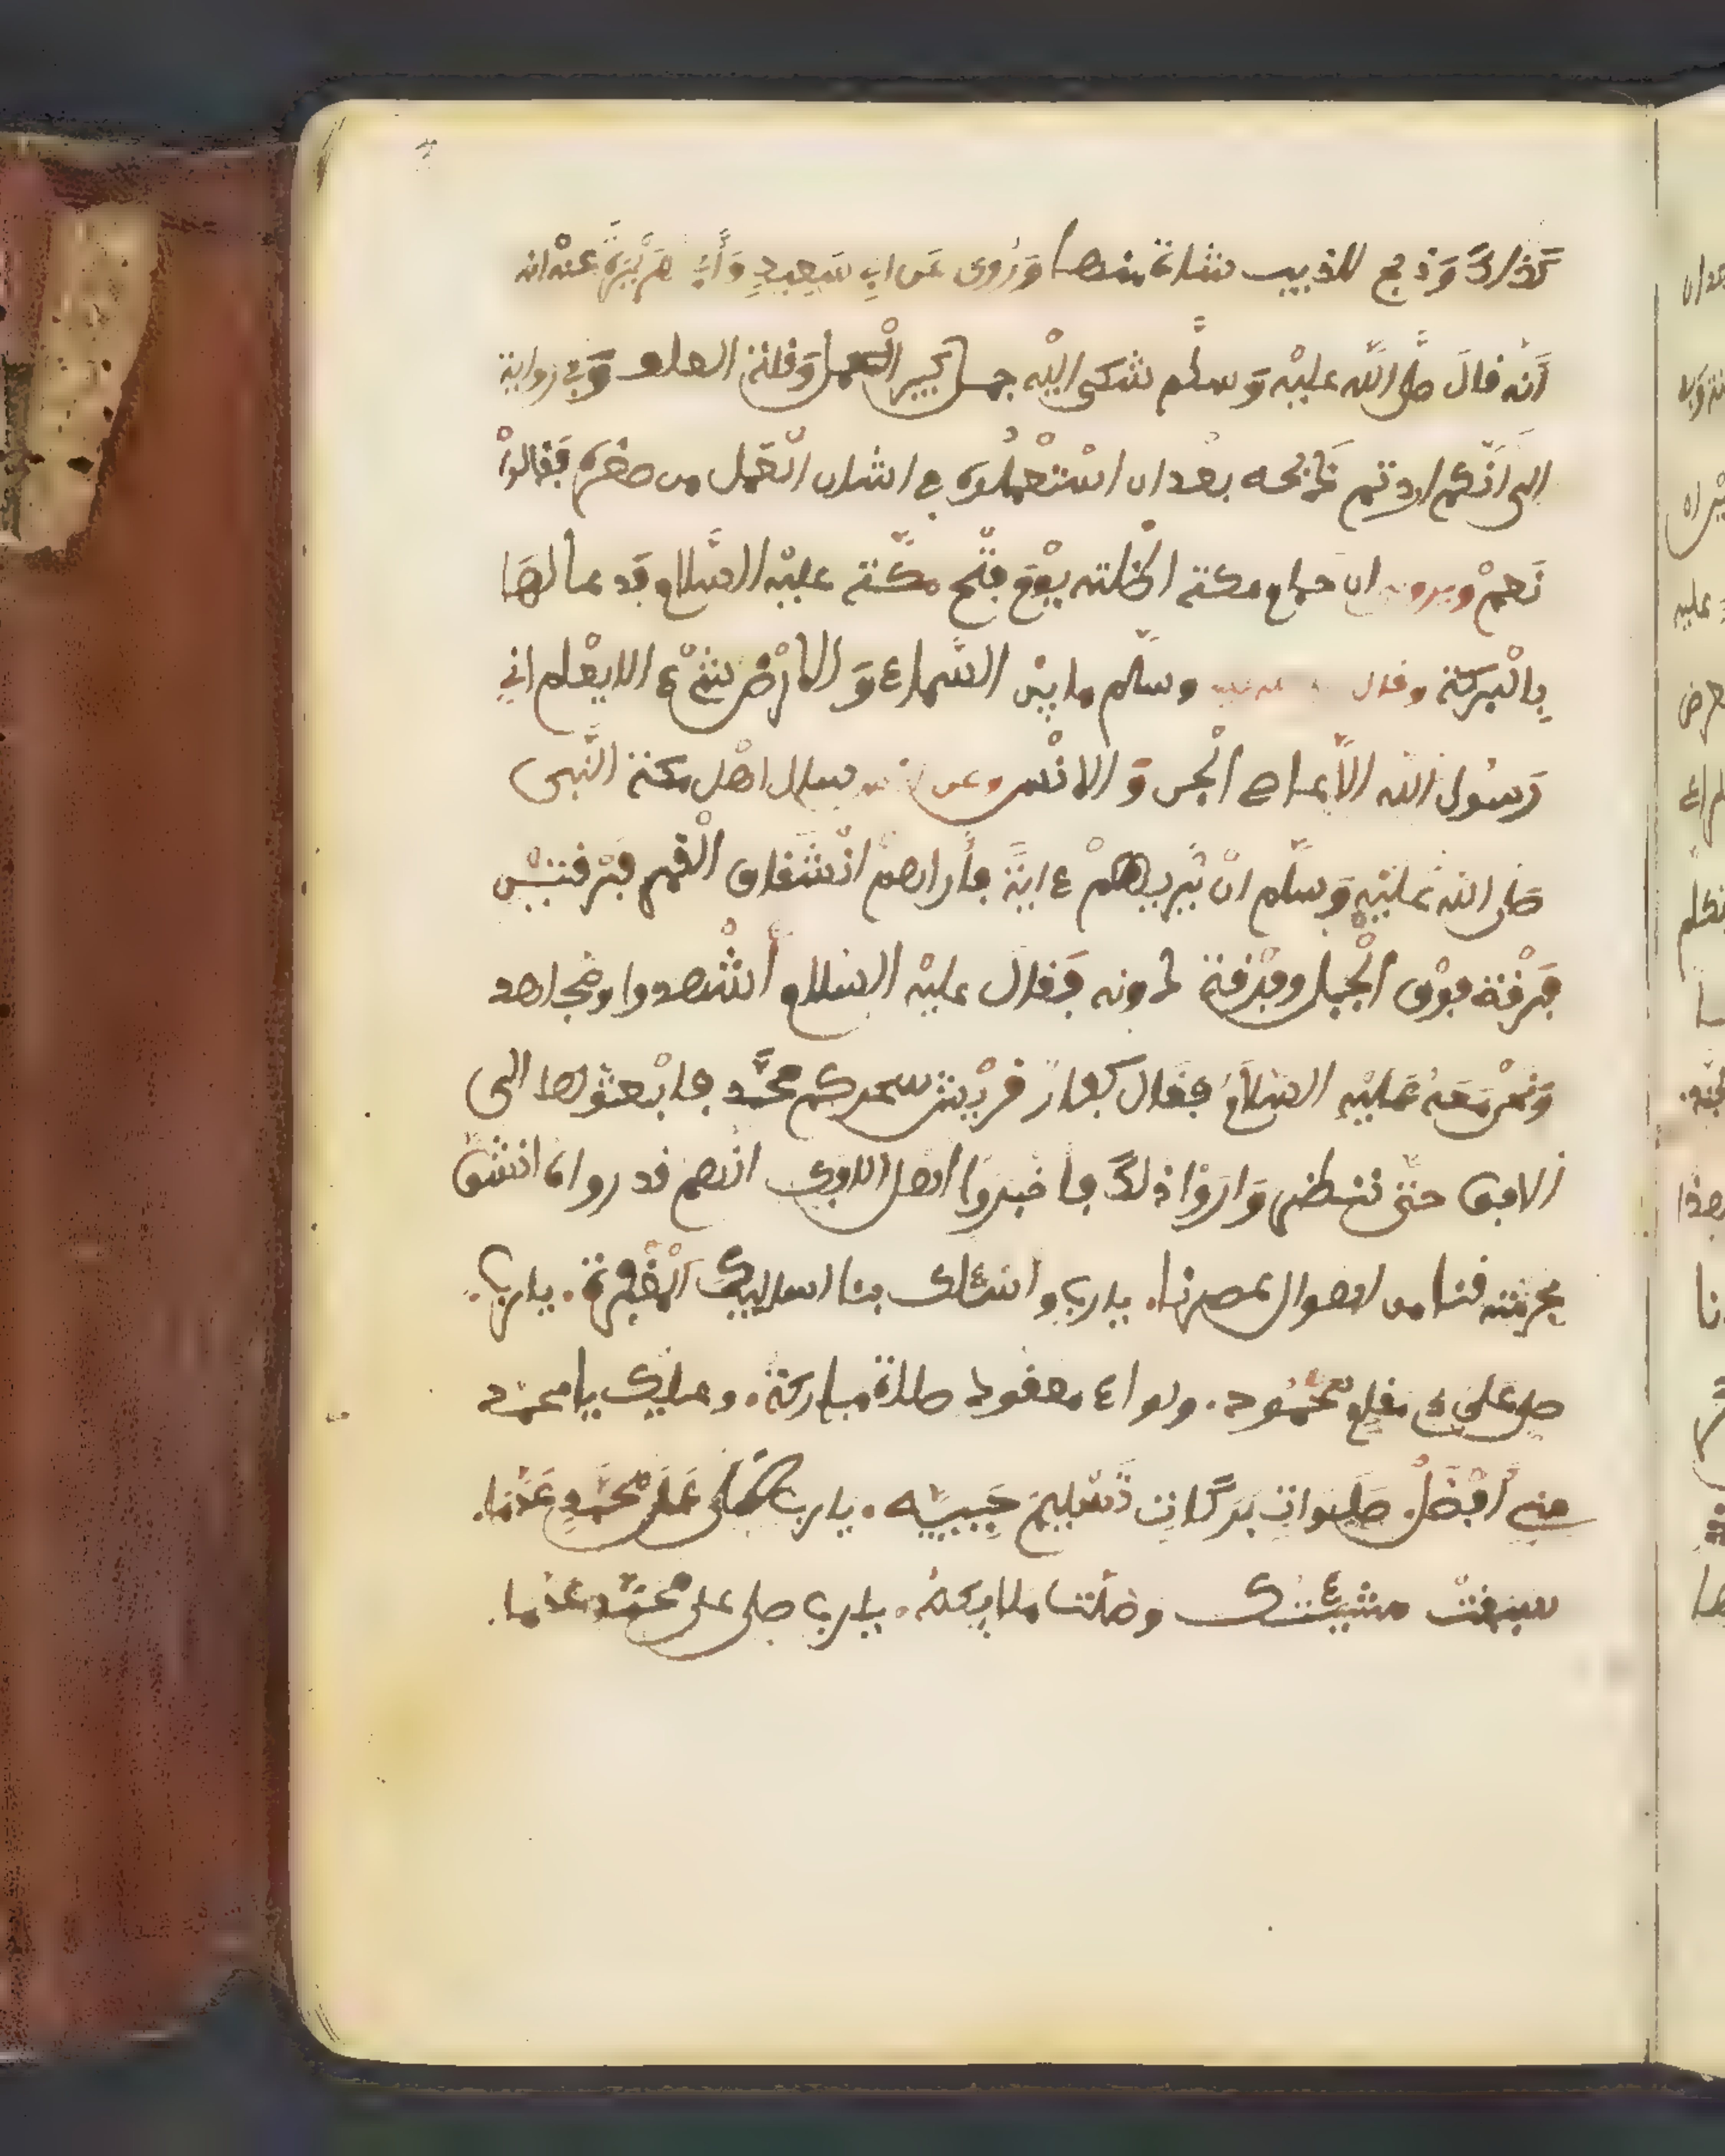 كذلك وذبح للذيب شاة منها وروى عن ابي سعيد وأبي هريرة عنه انه
أنه قال صلى الله عليه وسلم شكى اليه جمل كثير العمل وقلة العلف وفي رواية
الى انكم اردتم ذبحه بعد ان استعملوه في اشان العمل من صغره فقالوا
نعم ويروى ان حمام مكة اظلته يوم فتح مكة عليه السلام فدعا لها
بالبركة وقال وسلم ما بين السماء والارض شيء الا يعلم اني
رسول الله الا عاصي الجن والانس وعن سال اهل مكة النبي
صلى الله عليه وسلم ان يريهم ءاية فأراهم انشقاق القمر فرقتين
فرقة فوق الجبل وفرقة دونه فقال عليه السلام أشهدوا ومجاهد
ونحن معه عليه السلام فقال كفار قريش سحركم محمد فابعثوا الى
الافق حتى تنظر وارؤا ذلك فاخبروا اهل الافق انهم قد رواه انشق
بحرمته قنا من اهوال عصرنا. يارب واسئلك بنا اساليك المغفرة. يارب
صل على مقام محمود. ولواء معقود صلاة مباركة. وعليك يا محمد
مني أفضل صلوات بركات تسليم حبيبه. يارب صلى على محمد عدما.
سبقت مشيئتك وصلت ملايكة. يارب صلى على محمد عدما.